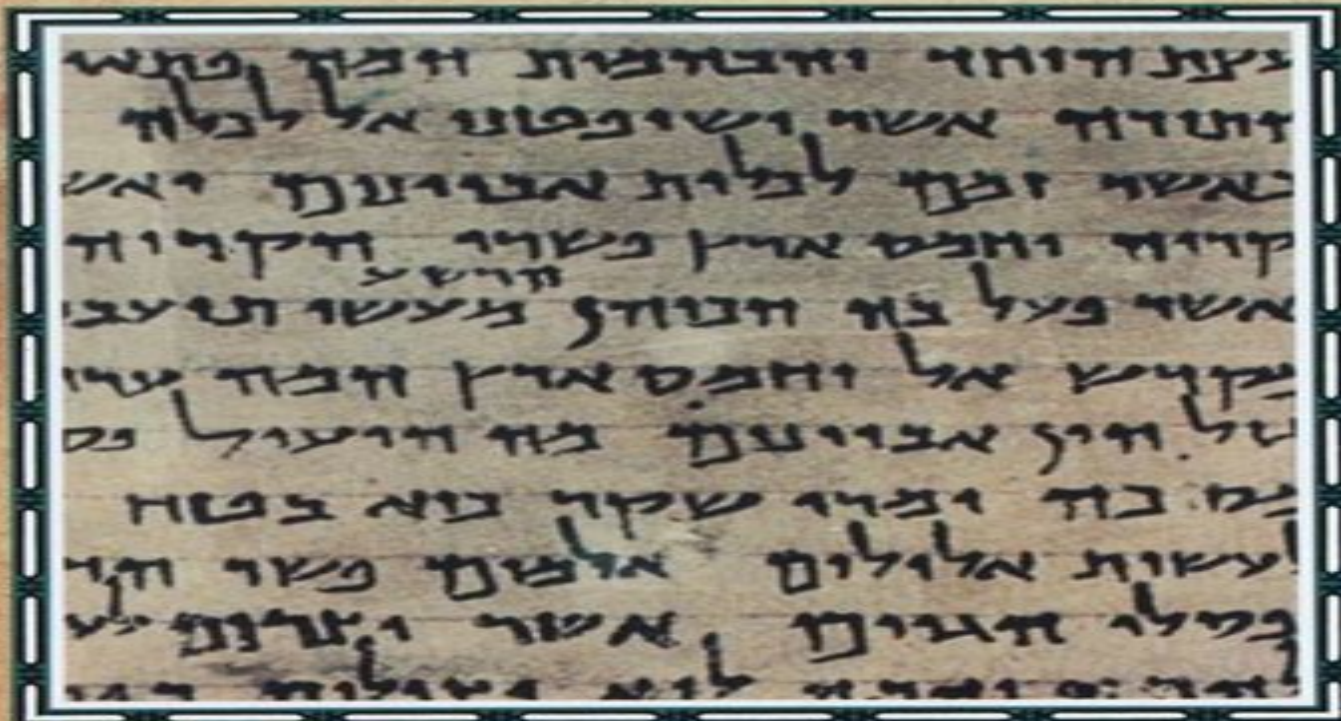 עצת היחד והבהמות המה פתאי
התורה אשר ישופטנו אל לכלה
כאשר זמם לכלות אביונים
קריה וחמס ארץ פשרו הקריה
הרשע
אשר פעל בה הכוהן מעשי תועב
מקדש אל וחמס ארץ המה ערי
הון אביונים מה הועיל פס
ומרי שקר כיא בטח
לעשות אלילים אלמים פשר הד
פסלי הגוים אשר יצרום
לוא יצילום